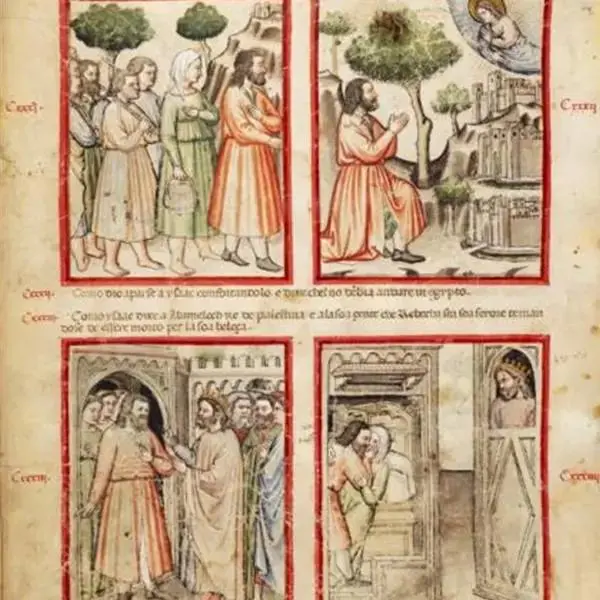 Cxxxj
Cxxxij
Cxxxij. Como dio aparse a ysaac confortandolo e dixe chel no debia andare in egypto.
Cxxxiij. Como ysaac dixe a Abimelech re de palestina e ala soa gente che Rebecha soa serore teman
dose de essere morto per la soa beleça.
Cxxxiij
Cxxxiiij